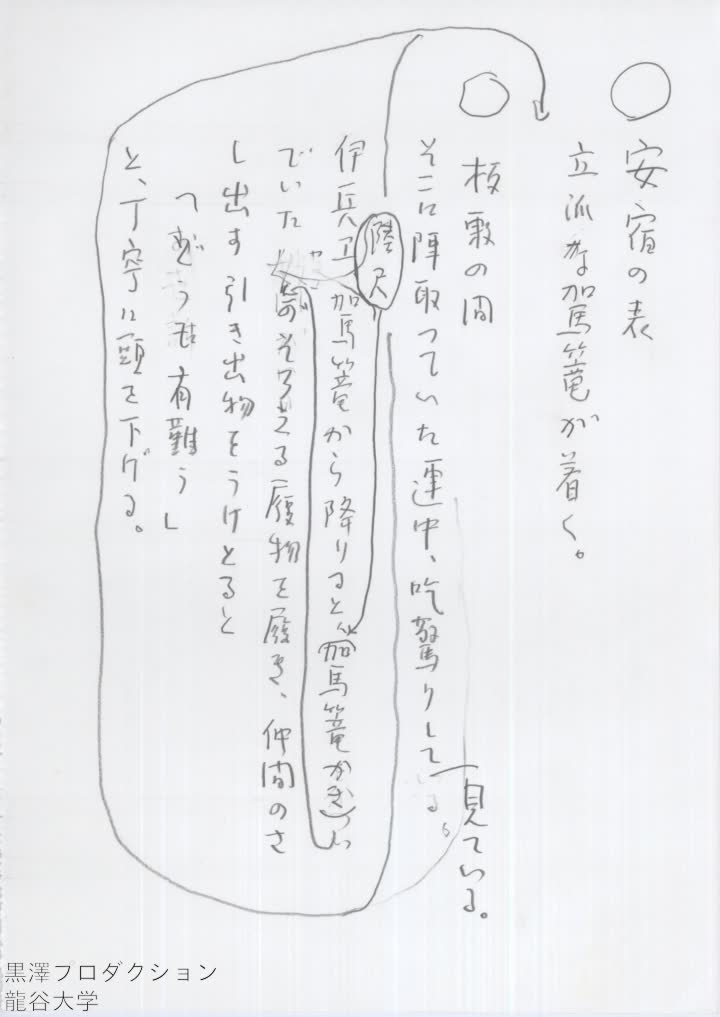 ○安宿の表
立派な駕篭が着く。
○板敷の間
そこに陣取っていた連中、吃驚りして見ている。
陸尺
伊兵卫駕篭から降りると(駕篭かき)
でいた
のそろえる履物を履き、仲間のさ
し出す引き出物をうけとると
「どうも有難う」
と、丁寧に頭を下げる。
黒澤プロダクション
龍谷大学